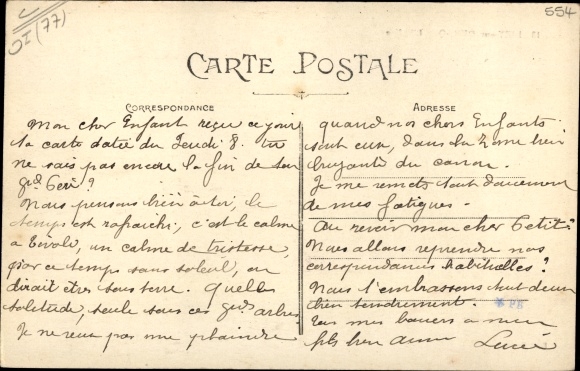 554
(77)
CARTE POSTALE
CORRESPONDANCE
Mon cher Enfant reçu ce jour
ta carte datée du Jeudi 8. tu
ne sais pas encore la fin de ton
gd Père ?
Nous pensons bien à toi, le
temps est rafraîchi, c'est le calme
à Tivoli, un calme de tristesse,
par ce temps sans soleil, on
dirait être sous terre. Quelle
solitude, seule sous ces gds arbres
Je ne veux pas me plaindre
ADRESSE
quand nos chers Enfants
sont eux, dans la zone bien
bruyante du canon.
Je me remets tout doucement
de mes fatigues.
Au revoir mon cher Petit
Nous allons reprendre nos
correspondances habituelles ?
Nous t'embrassons tout deux
bien tendrement.
Tous mes baisers à mon
fils bien aimé Lucie